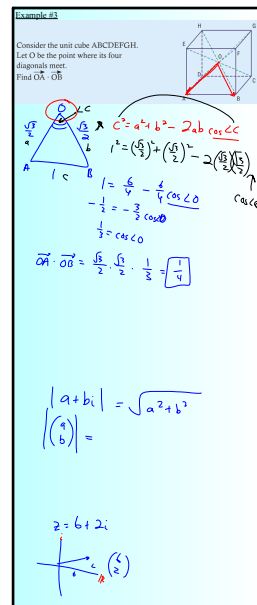 Example #3
Consider the unit cube ABCDEFGH.
Let O be the point where its four
diagonals meet.
Find OA · OB
H G
E F
O
D C
A B
O ∠C
√3/2 √3/2
a b
A B
1 c
c² = a² + b² - 2ab cos∠C
1² = (√3/2)² + (√3/2)² - 2(√3/2)(√3/2)
1 = 6/4 - 6/4 cos∠O
-1/2 = -3/2 cos∠O
1/3 = cos∠O
OA · OB = √3/2 · √3/2 · 1/3 = 1/4
|a+bi| = √a²+b²
|(a b)| =
z = 6 + 2i
i
6 2
(6 2)